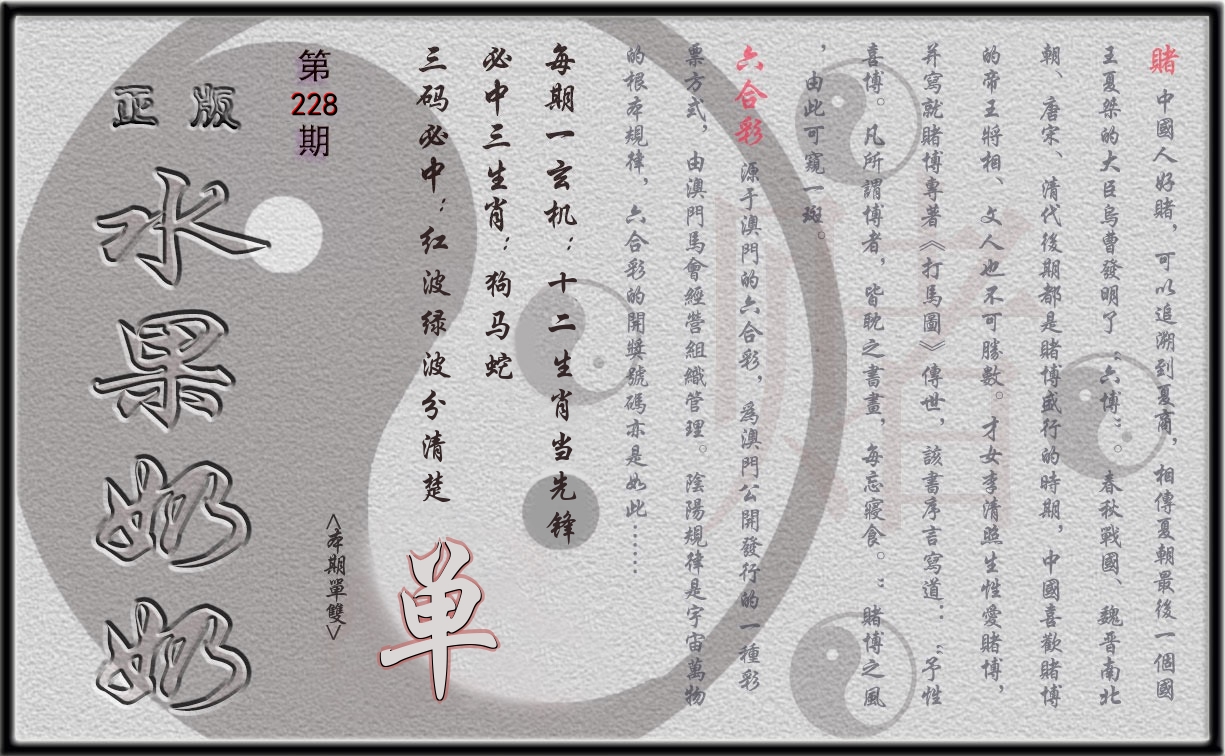 賭 中國人好賭，可以追溯到夏商，相傳夏朝最後一個國
王夏桀的大臣烏曹發明了“六博”。春秋戰國、魏晋南北
朝、唐宋、清代後期都是賭博盛行的時期，中國喜歡賭博
的帝王將相、文人也不可勝數。才女李清照生性愛賭博，
并寫就賭博專著《打馬圖》傳世，該書序言寫道：“予性
喜博。凡所謂博者，皆耽之書畫，每忘寢食。”賭博之風
，由此可窺一斑。
六合彩 源于澳門的六合彩，為澳門公開發行的一種彩
票方式，由澳門馬會經營組織管理。陰陽規律是宇宙萬物
的根本規律，六合彩的開獎號碼亦是如此……
每期一玄机：十二生肖当先锋
必中三生肖：狗马蛇
三码必中：红波绿波分清楚
单
<本期單雙>
第
228
期
正版
水果奶奶
賭